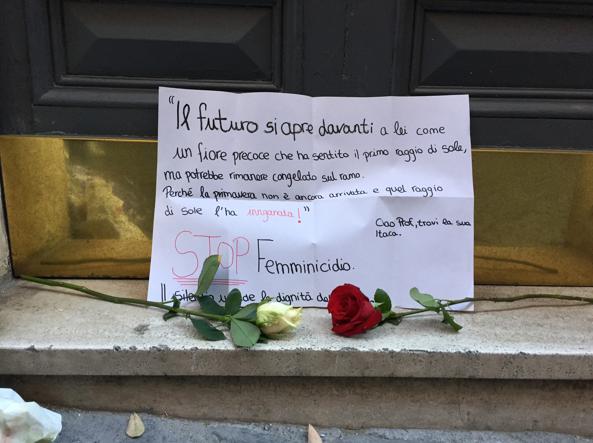 "Il futuro si apre davanti a lei come
un fiore precoce che ha sentito il primo raggio di sole,
ma potrebbe rimanere congelato sul ramo.
Perché la primavera non è ancora arrivata e quel raggio
di sole l'ha ingannata!"
Ciao Prof, trovi la sua
Itaca.
STOP Femminicidio.
Il silenzio la dignità